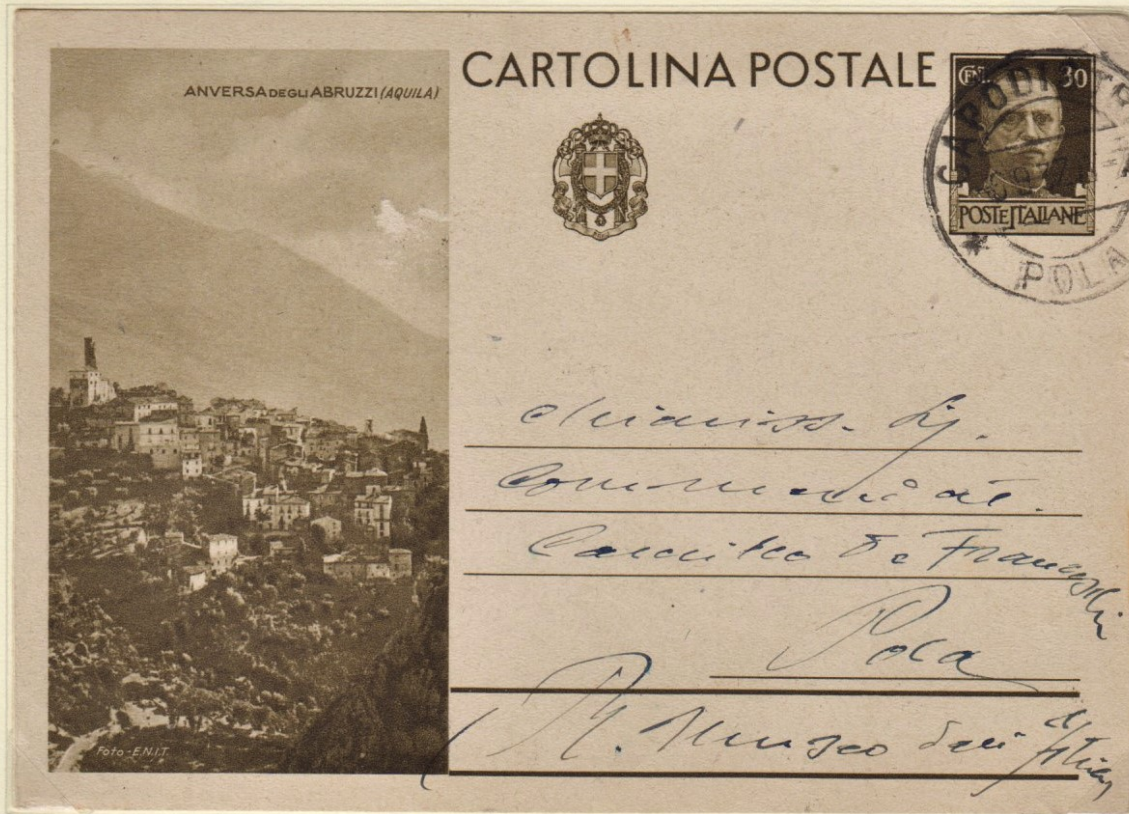 ANVERSA DEGLI ABRUZZI (AQUILA)
CARTOLINA POSTALE
CENT. 30
POSTE ITALIANE
CAPODISTR
POLA
Chiariss. Sig.
Camillo De Franceschi
Pola
R. Museo
Foto-E.N.I.T.